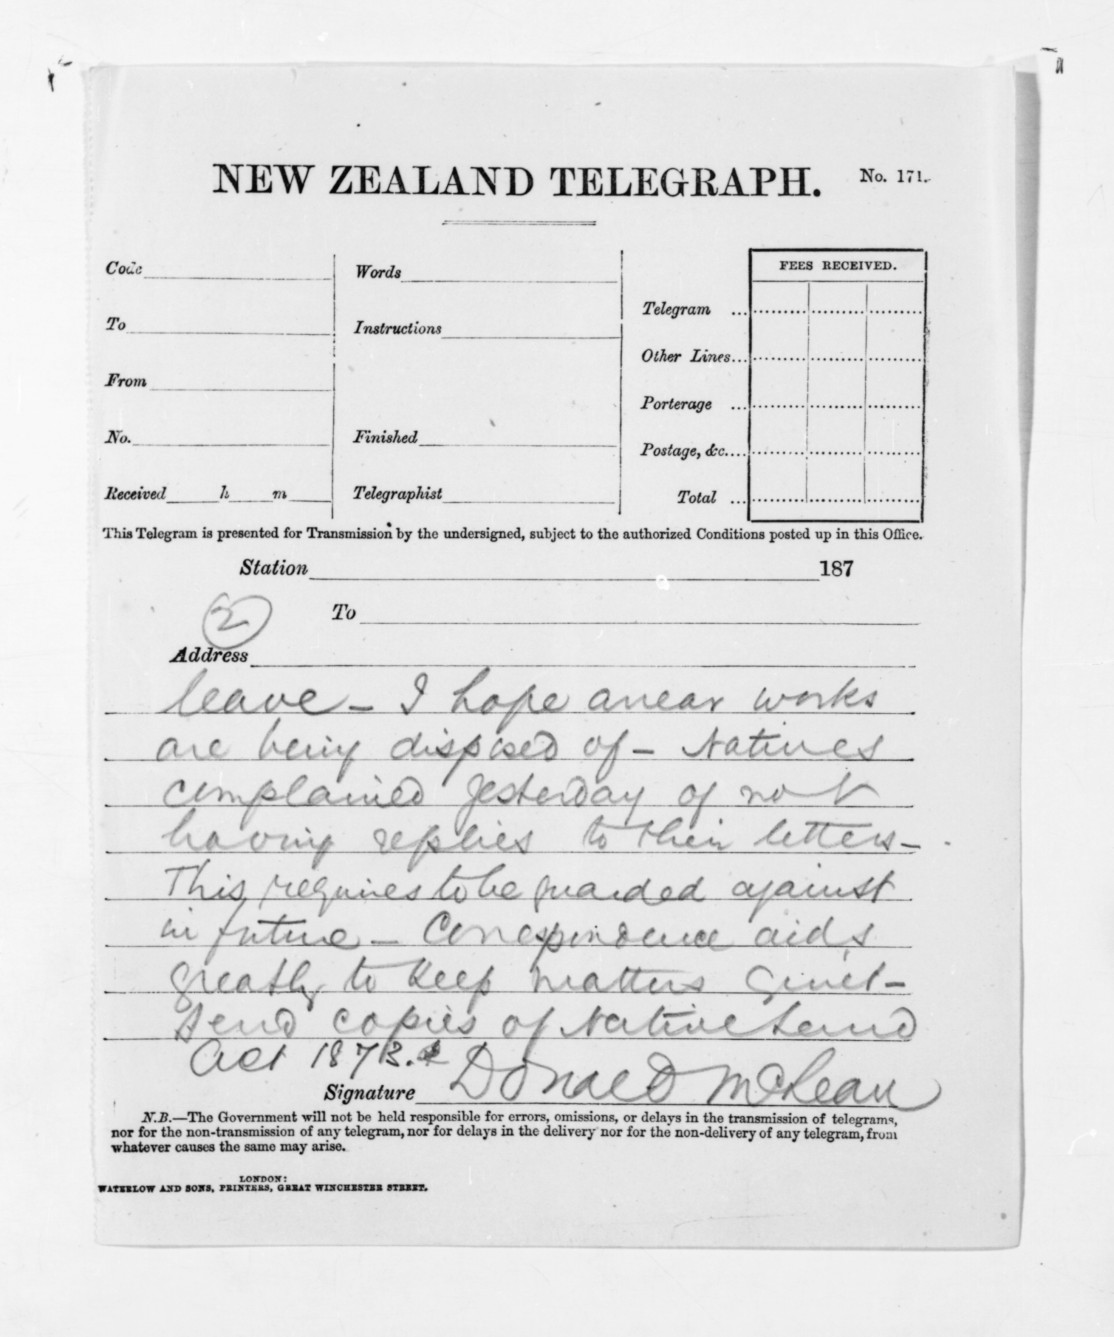 NEW ZEALAND TELEGRAPH. No. 171.
FEES RECEIVED.
Code
Words
Telegram ...
To
Instructions
Other Lines...
From
Porterage ...
No.
Finished
Postage, &c....
Received h m
Telegraphist
Total ...
This Telegram is presented for Transmission by the undersigned, subject to the authorized Conditions posted up in this Office.
Station 187
2
To
Address
leave - I hope arrear works
are being disposed of - Natives
complained yesterday of not
having replies to their letters -
This requires to be guarded against
in future - Correspondence aids
greatly to keep matters quiet -
Send copies of Native Land
Act 1873.
Signature Donald McLean
N.B.—The Government will not be held responsible for errors, omissions, or delays in the transmission of telegrams,
nor for the non-transmission of any telegram, nor for delays in the delivery nor for the non-delivery of any telegram, from
whatever causes the same may arise.
LONDON:
WATERLOW AND SONS, PRINTERS, GREAT WINCHESTER STREET.